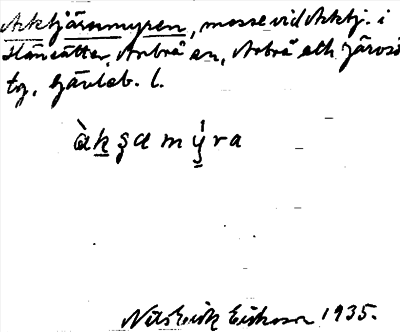 Arktjärnmyren, mosse vid Arktj. i
Stånsätter, Arbrå sn, Arbrå och Järvsö
tg, Gävleb. l.
àkʂa mýra
Nils Erik Eriksson 1935.